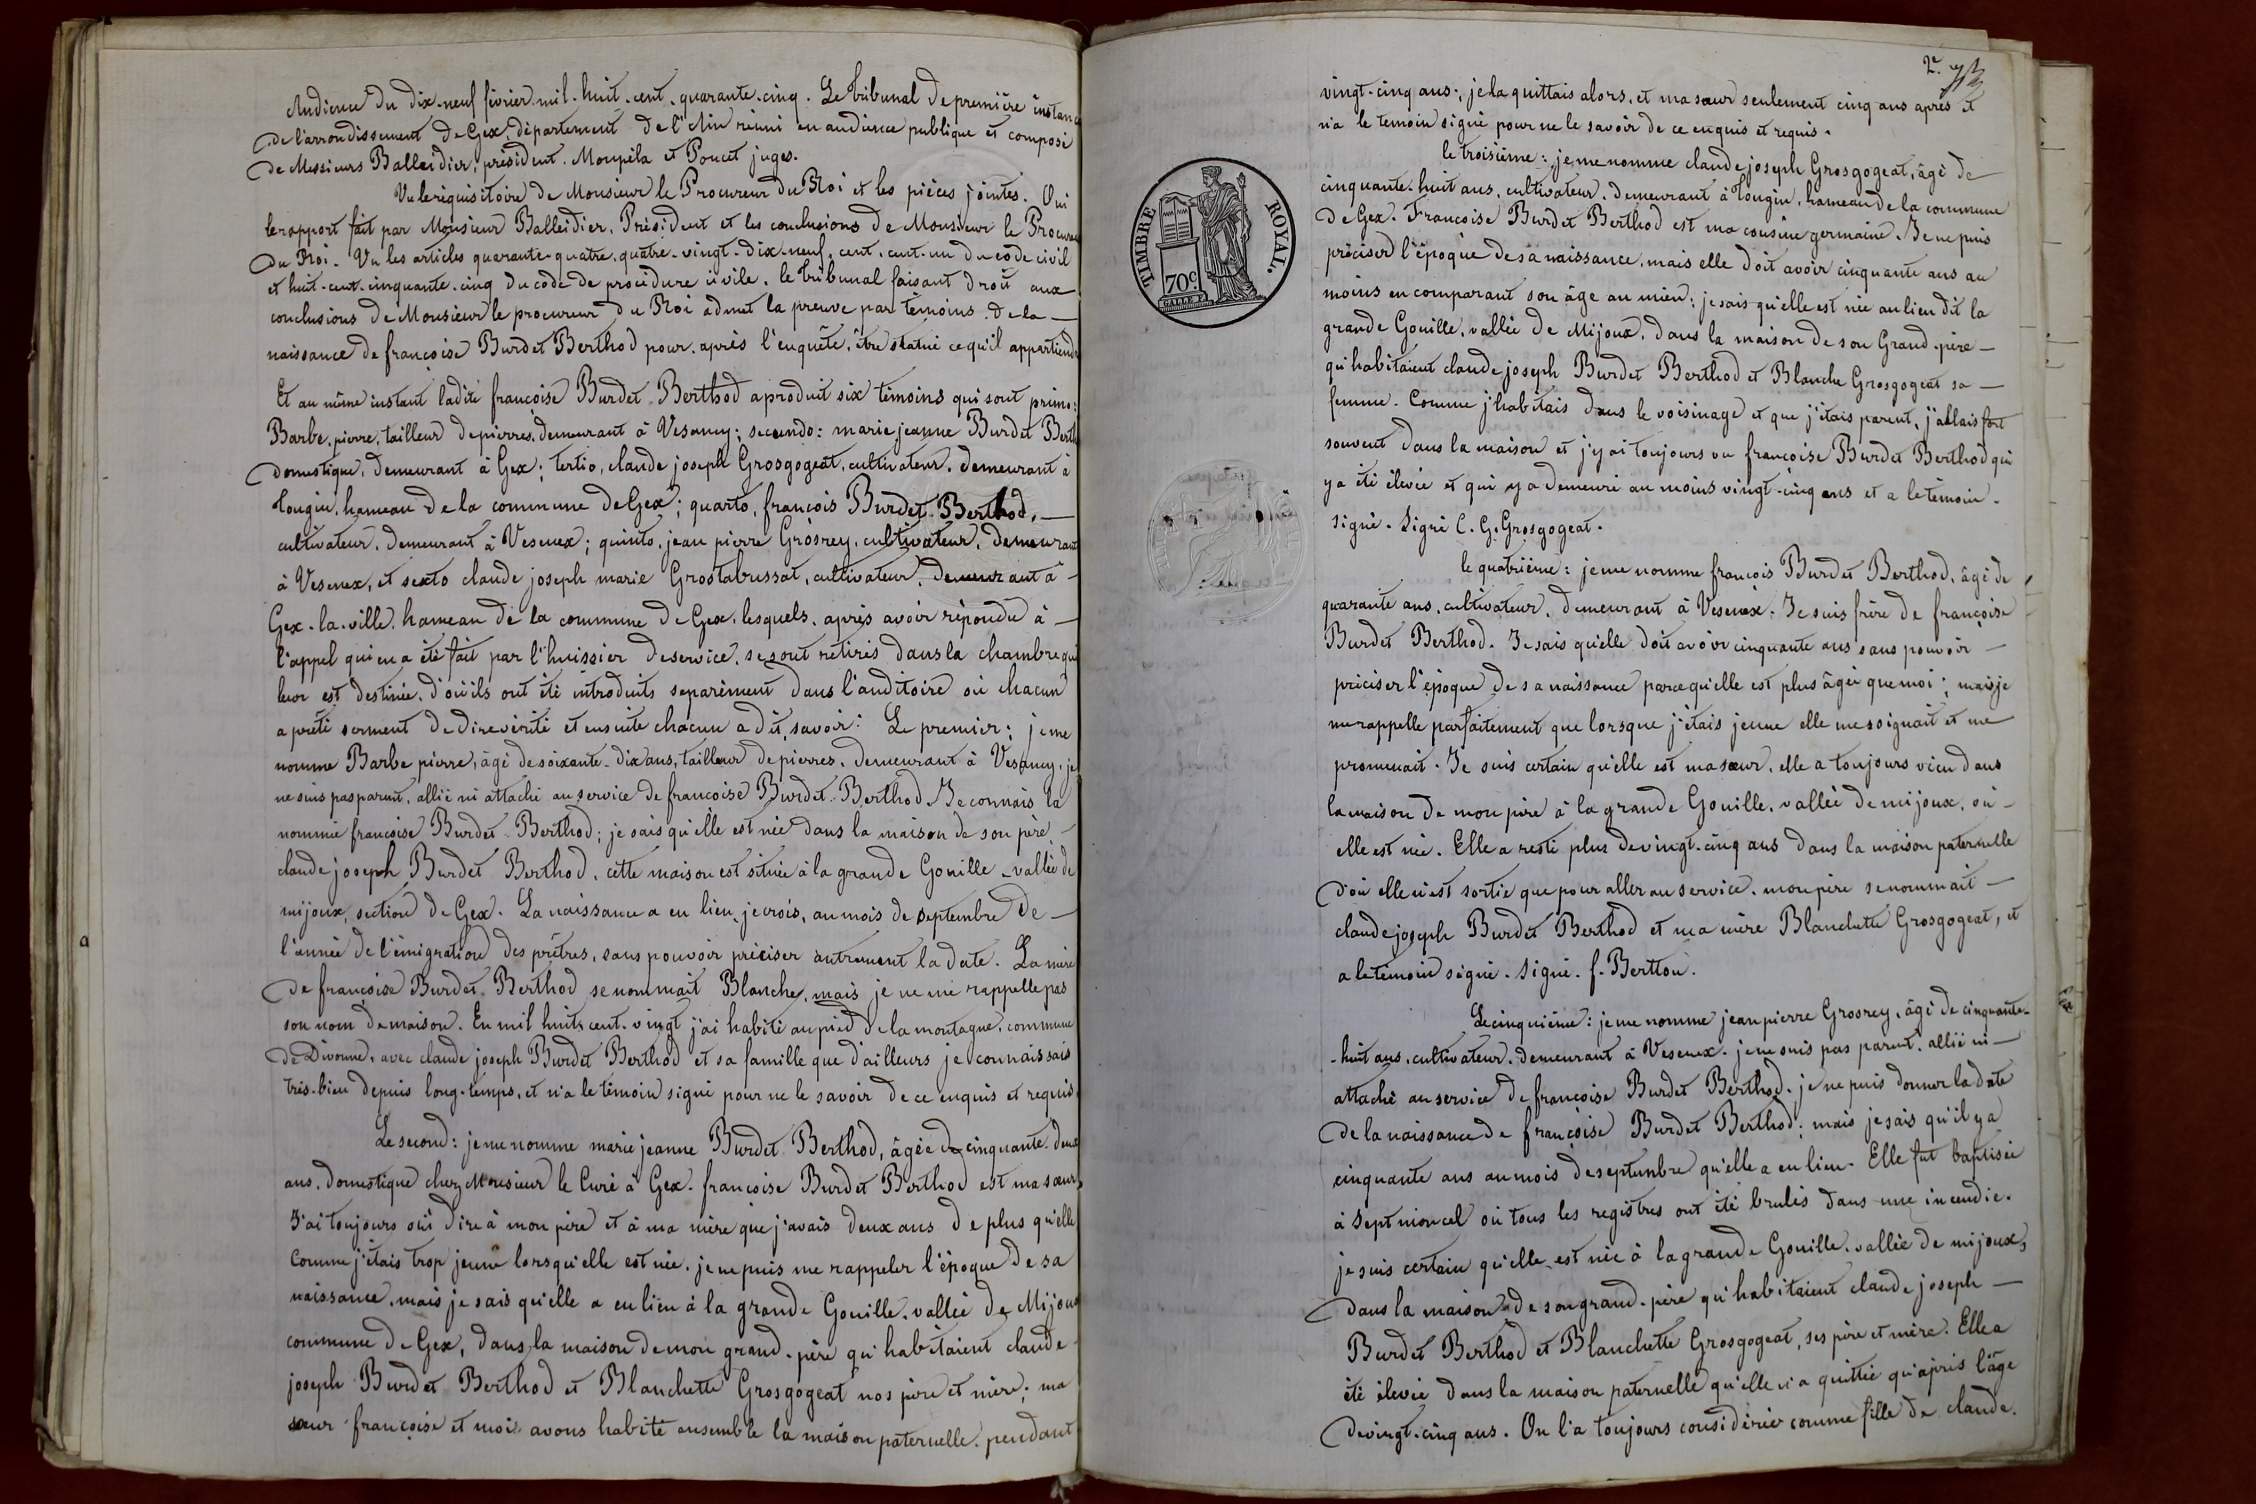 Audience du dix-neuf février mil-huit-cent-quarante-cinq. Le Tribunal de première instance
de l'arrondissement de Gex, département de l'Ain réuni en audience publique et composé
de Messieurs Balleidier, président. Monpéla et Poncet juges.
Vu le réquisitoire de Monsieur le Procureur du Roi et les pièces jointes. Oui
le rapport fait par Monsieur Balleidier, Président et les conclusions de Monsieur le Procureur
du Roi. Vu les articles quarante-quatre, quatre-vingt-dix-neuf, cent, cent-un du code civil
et huit-cent-cinquante-cinq du code de procédure civile, le Tribunal faisant droit aux
conclusions de Monsieur le procureur du Roi admet la preuve par témoins de la —
naissance de françoise Burdet Berthod pour, après l'enquête, être statué ce qu'il appartiendra
Et au même instant ladite françoise Burdet-Berthod a produit six témoins qui sont primo:
Barbe, pierre, tailleur de pierres, demeurant à Vesancy; secundo: marie jeanne Burdet Berth
domestique, demeurant à Gex; tertio, claude joseph Grosgogeat, cultivateur, demeurant à
Tougin, hameau de la commune de Gex; quarto, françois Burdet-Berthod, —
cultivateur, demeurant à Vesenex; quinto, jean pierre Grosrey, cultivateur, demeurant
à Vesenex, et sexto claude joseph marie Grostabussat, cultivateur, demeurant à —
Gex-la-ville, hameau de la commune de Gex, lesquels, après avoir répondu à —
l'appel qui en a été fait par l'huissier de service, se sont retirés dans la chambre qui
leur est destinée, d'où ils ont été introduits séparément dans l'auditoire où chacun
a prêté serment de dire vérité et ensuite chacun a dit, savoir: Le premier: je me
nomme Barbe pierre, âgé de soixante-dix ans, tailleur de pierres, demeurant à Vesancy, je
ne suis pas parent, allié ni attaché au service de françoise Burdet-Berthod. Je connais la
nommée françoise Burdet-Berthod; je sais qu'elle est née dans la maison de son père —
claude joseph Burdet Berthod, cette maison est située à la grande Gouille, vallée de
mijoux, section de Gex. La naissance a eu lieu, je crois, au mois de septembre de —
l'année de l'émigration des prêtres, sans pouvoir préciser autrement la date. La mère
de françoise Burdet-Berthod se nommait Blanche, mais je ne me rappelle pas
son nom de maison. En mil huit cent-vingt j'ai habité au pied de la montagne, commune
de Divonne, avec claude joseph Burdet Berthod et sa famille que d'ailleurs je connaissais
très-bien depuis long-temps, et n'a le témoin signé pour ne le savoir de ce enquis et requis.
Le second: je me nomme marie jeanne Burdet-Berthod, âgée de cinquante-deux
ans, domestique chez Monsieur le Curé à Gex. françoise Burdet Berthod est ma sœur,
J'ai toujours oüi dire à mon père et à ma mère que j'avais deux ans de plus qu'elle
Comme j'étais trop jeune lorsqu'elle est née, je ne puis me rappeler l'époque de sa
naissance, mais je sais qu'elle a eu lieu à la grande Gouille, vallée de Mijoux
commune de Gex, dans la maison de mon grand-père qu'habitaient claude-
joseph Burdet Berthod et Blanchette Grosgogeat nos père et mère; ma
sœur françoise et moi avons habité ensemble la maison paternelle pendant
2e.
vingt-cinq ans; je la quittais alors, et ma sœur seulement cinq ans après et
n'a le témoin signé pour ne le savoir de ce enquis et requis.
le troisième: je me nomme claude joseph Grosgogeat, âgé de
cinquante-huit ans, cultivateur, demeurant à Tougin, hameau de la commune
de Gex. Francoise Burdet Berthod est ma cousine germaine. Je ne puis
préciser l'époque de sa naissance, mais elle doit avoir cinquante ans au
moins en comparant son âge au mien; je sais qu'elle est née au lieu dit la
grande Gouille, vallée de Mijoux, dans la maison de son Grand-père —
qu'habitaient claude joseph Burdet Berthod et Blanche Grosgogeat sa —
femme. Comme j'habitais dans le voisinage et que j'étais parent, j'allais fort
souvent dans la maison et j'y ai toujours vu françoise Burdet Berthod qui
y a été élevée et qui y a demeuré au moins vingt-cinq ans et a le témoin —
signé. Signé C. G. Grosgogeat.
le quatrième: je me nomme françois Burdet Berthod, âgé de
quarante ans, cultivateur, demeurant à Vesenex. Je suis frère de françoise
Burdet Berthod. Je sais qu'elle doit avoir cinquante ans sans pouvoir —
préciser l'époque de sa naissance parce qu'elle est plus âgée que moi; mais je
me rappelle parfaitement que lorsque j'étais jeune elle me soignait et me
promenait. Je suis certain qu'elle est ma sœur, elle a toujours vécu dans
la maison de mon père à la grande Gouille, vallée de mijoux, où —
elle est née. Elle a resté plus de vingt-cinq ans dans la maison paternelle
d'où elle n'est sortie que pour aller au service. mon père se nommait —
claude joseph Burdet Berthod et ma mère Blanchette Grosgogeat, et
a le témoin signé. Signé. f. Berttou.
Le cinquième: je me nomme jean pierre Grosrey, âgé de cinquante-
-huit ans, cultivateur, demeurant à Vesenex. je ne suis pas parent, allié ni —
attaché au service de françoise Burdet Berthod. je ne puis donner la date
de la naissance de françoise Burdet Berthod; mais je sais qu'il y a
cinquante ans au mois de septembre qu'elle a eu lieu. Elle fut baptisée
à Septmoncel où tous les registres ont été brulés dans une incendie.
je suis certain qu'elle est née à la grande Gouille, vallée de mijoux,
dans la maison de son grand-père qu'habitaient claude joseph —
Burdet Berthod et Blanchette Grosgogeat, ses père et mère. Elle a
été élevée dans la maison paternelle qu'elle n'a quittée qu'après l'âge
de vingt-cinq ans. On l'a toujours considérée comme fille de claude.
TIMBRE ROYAL.
70c